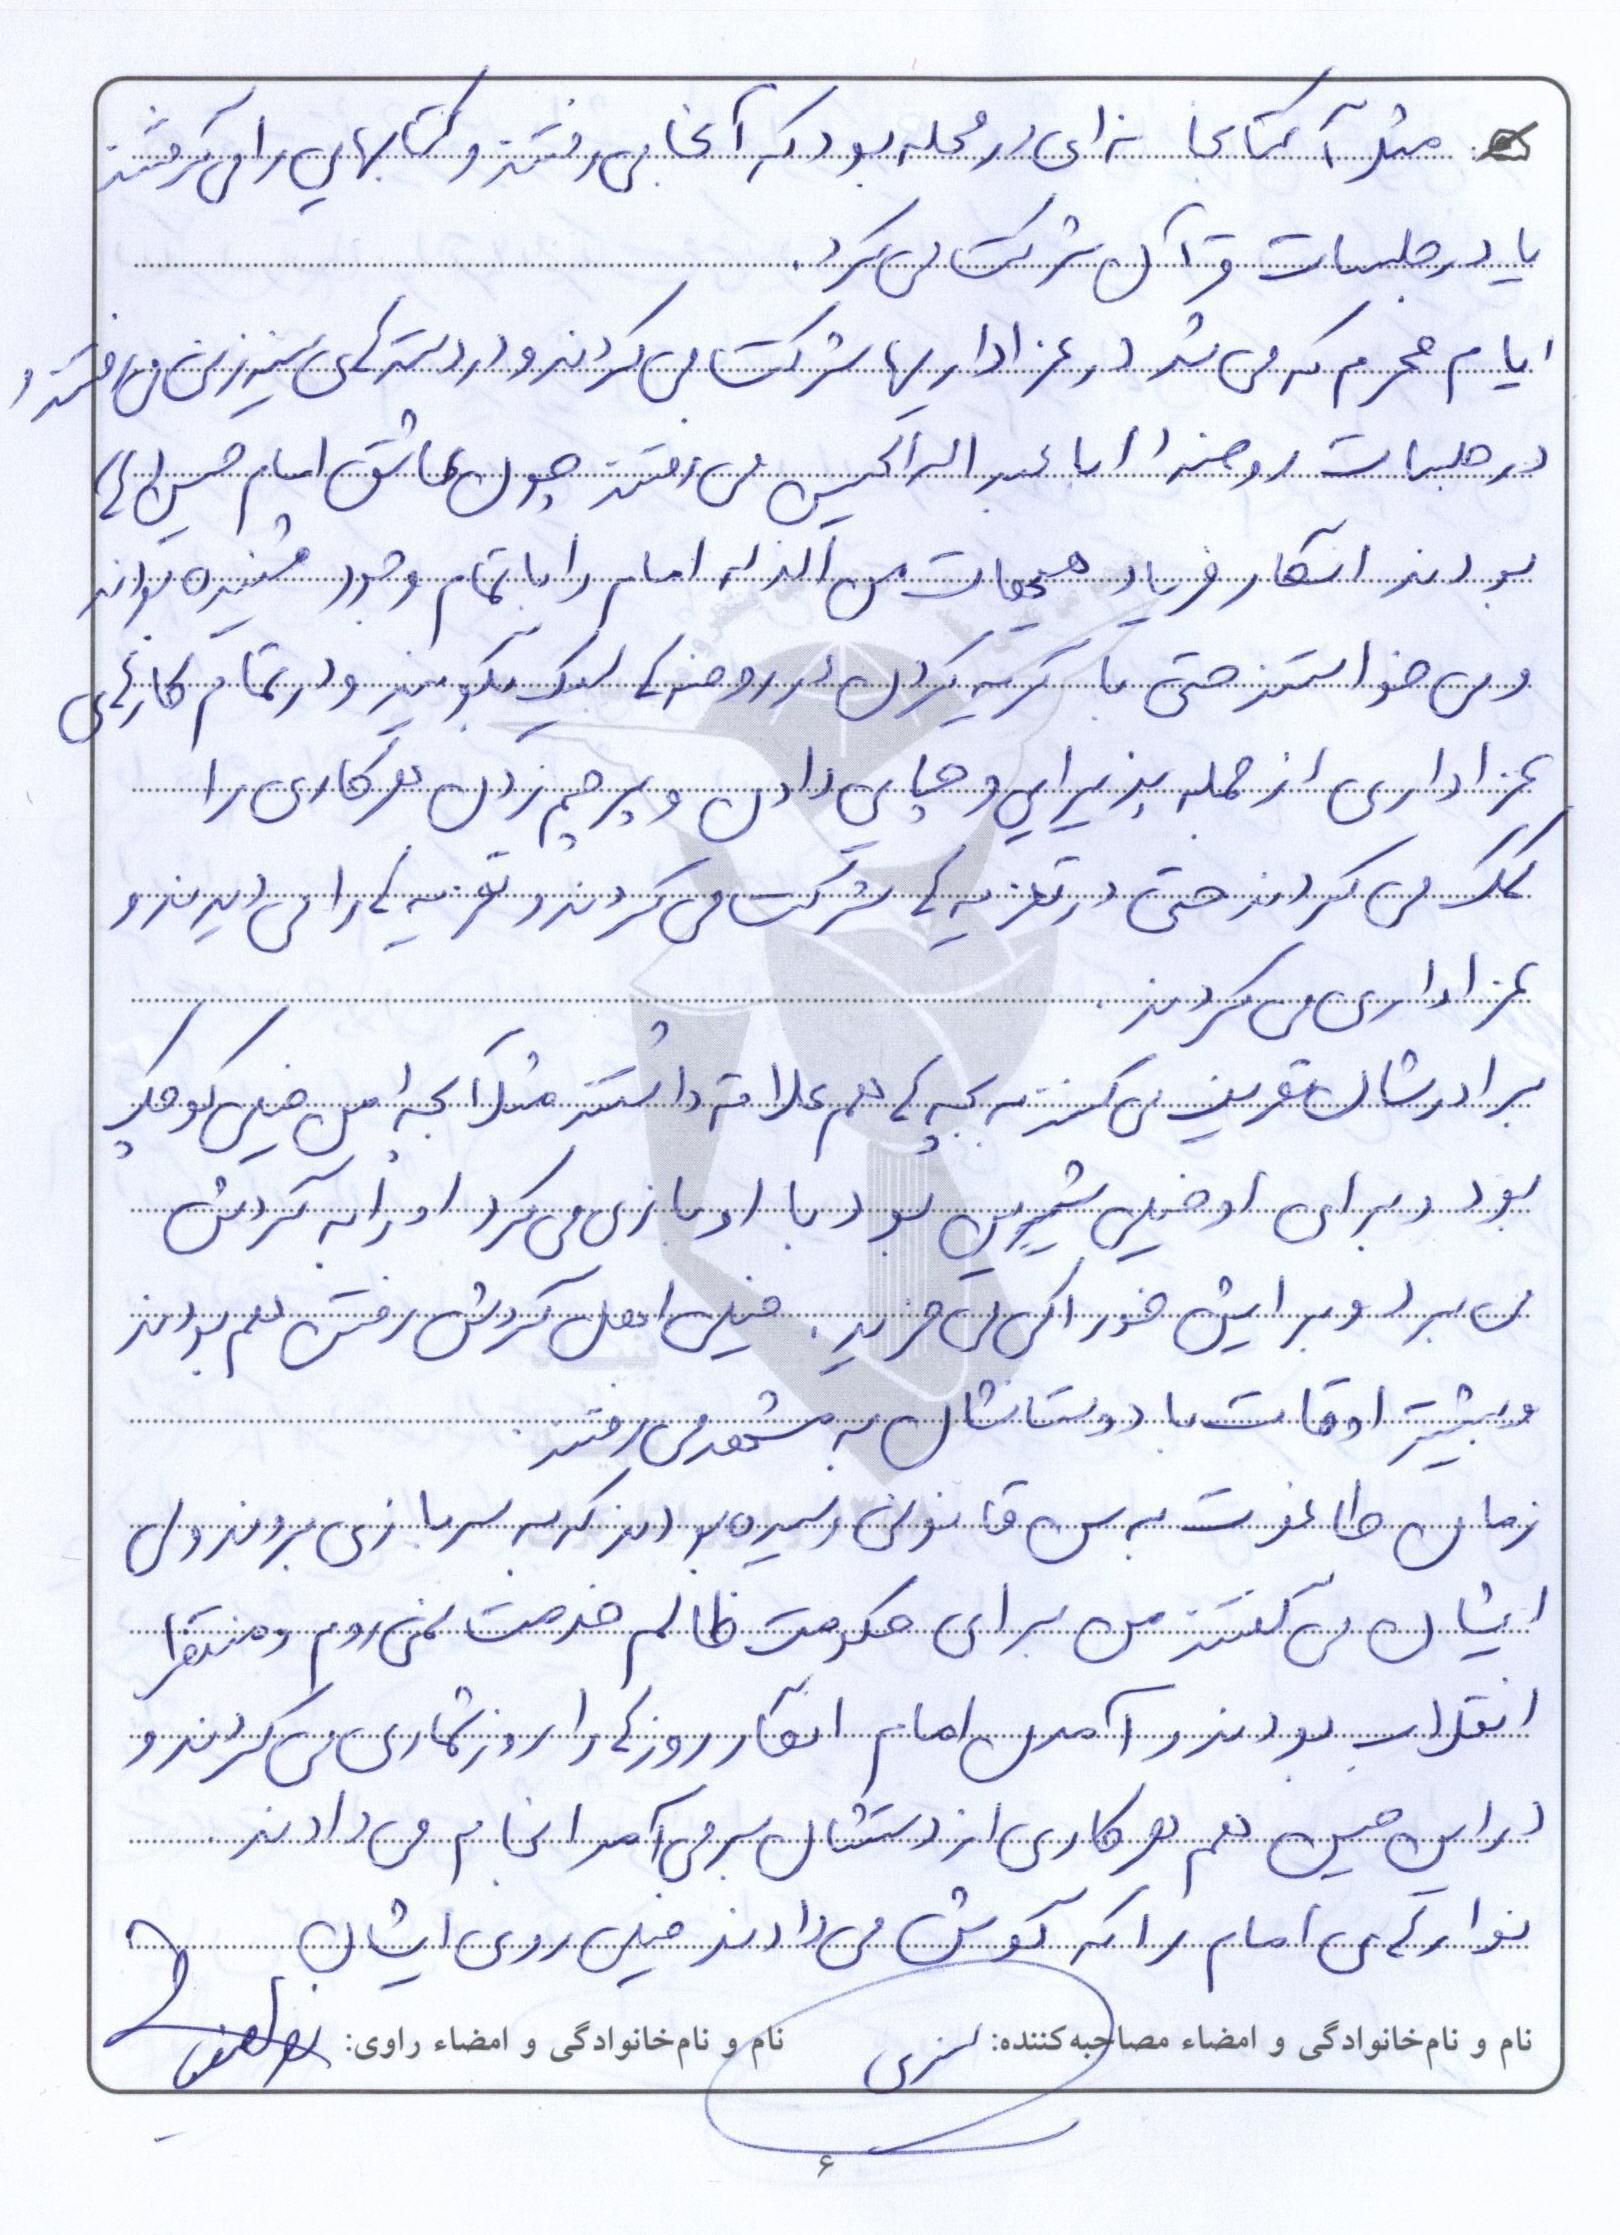 مثلاً کتابخانه‌ای در محله بود که آنجا می‌رفتند و کتابهایی را می‌گرفتند
یا در جلسات قرآن شرکت می‌کرد.
ایام محرم که می‌شد در عزاداریها شرکت می‌کردند و در دسته‌های سینه‌زنی می‌رفتند و
در جلسات روضه ابا عبدالله الحسین می‌رفتند چون عاشق امام حسین (ع)
بودند انگار فریاد هیهات من الذله امام را با تمام وجود شنیده بودند
و می‌خواستند حتی با گریه کردن در روضه‌ها لبیک بگویند و در تمام کارهای
عزاداری از جمله پذیرایی و چایی دادن و پرچم زدن هر کاری را
کمک می‌کردند حتی در تعزیه‌ها شرکت می‌کردند و تعزیه‌ها را می‌دیدند و
عزاداری می‌کردند.
برادرشان تعریف می‌کنند به بچه‌ها هم علاقه داشتند مثلاً بچه‌ام من خیلی کوچک
بود و برای او خیلی شیرین بود با او بازی می‌کرد او را به گردش
می‌برد و برایش خوراکی می‌خرید. خیلی اهل گردش رفتن هم بودند
و بیشتر اوقات با دوستانشان به مشهد می‌رفتند.
زمان طاغوت به سن قانونی رسیده بودند که به سربازی بروند ولی
ایشان می‌گفتند من برای حکومت ظالم خدمت نمی‌روم و منتظر
انقلاب بودند و آمدن امام انگار روزها را روزشماری می‌کردند و
در این حین هم هر کاری از دستشان برمی‌آمد انجام می‌دادند.
نوارهای امام را که گوش می‌دادند خیلی روی ایشان
نام و نام‌خانوادگی و امضاء مصاحبه‌کننده: نام و نام‌خانوادگی و امضاء راوی:
۶